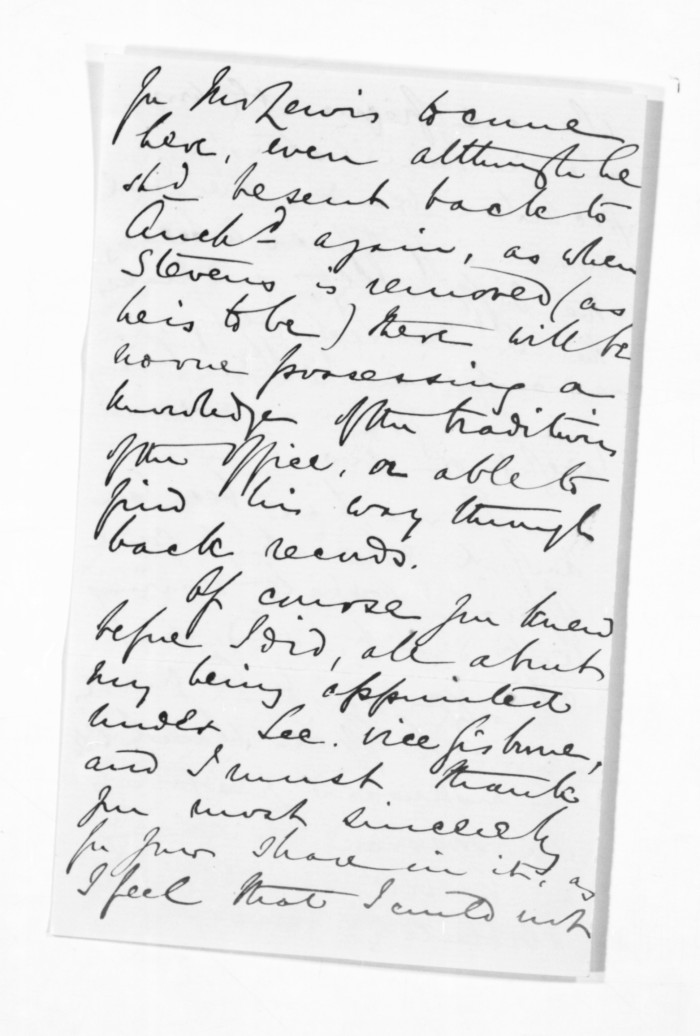 for Mr Lewis to come
here, even although he
shd be sent back to
Auckd again, as when
Stevens is removed (as
he is to be) there will be
no one possessing a
knowledge of the traditions
of the office, or able to
find his way through
back records.
Of course you knew
before I did, all about
my being appointed
under Sec. vice Gisborne,
and I must thank
you most sincerely
for your share in it, as
I feel that I could not